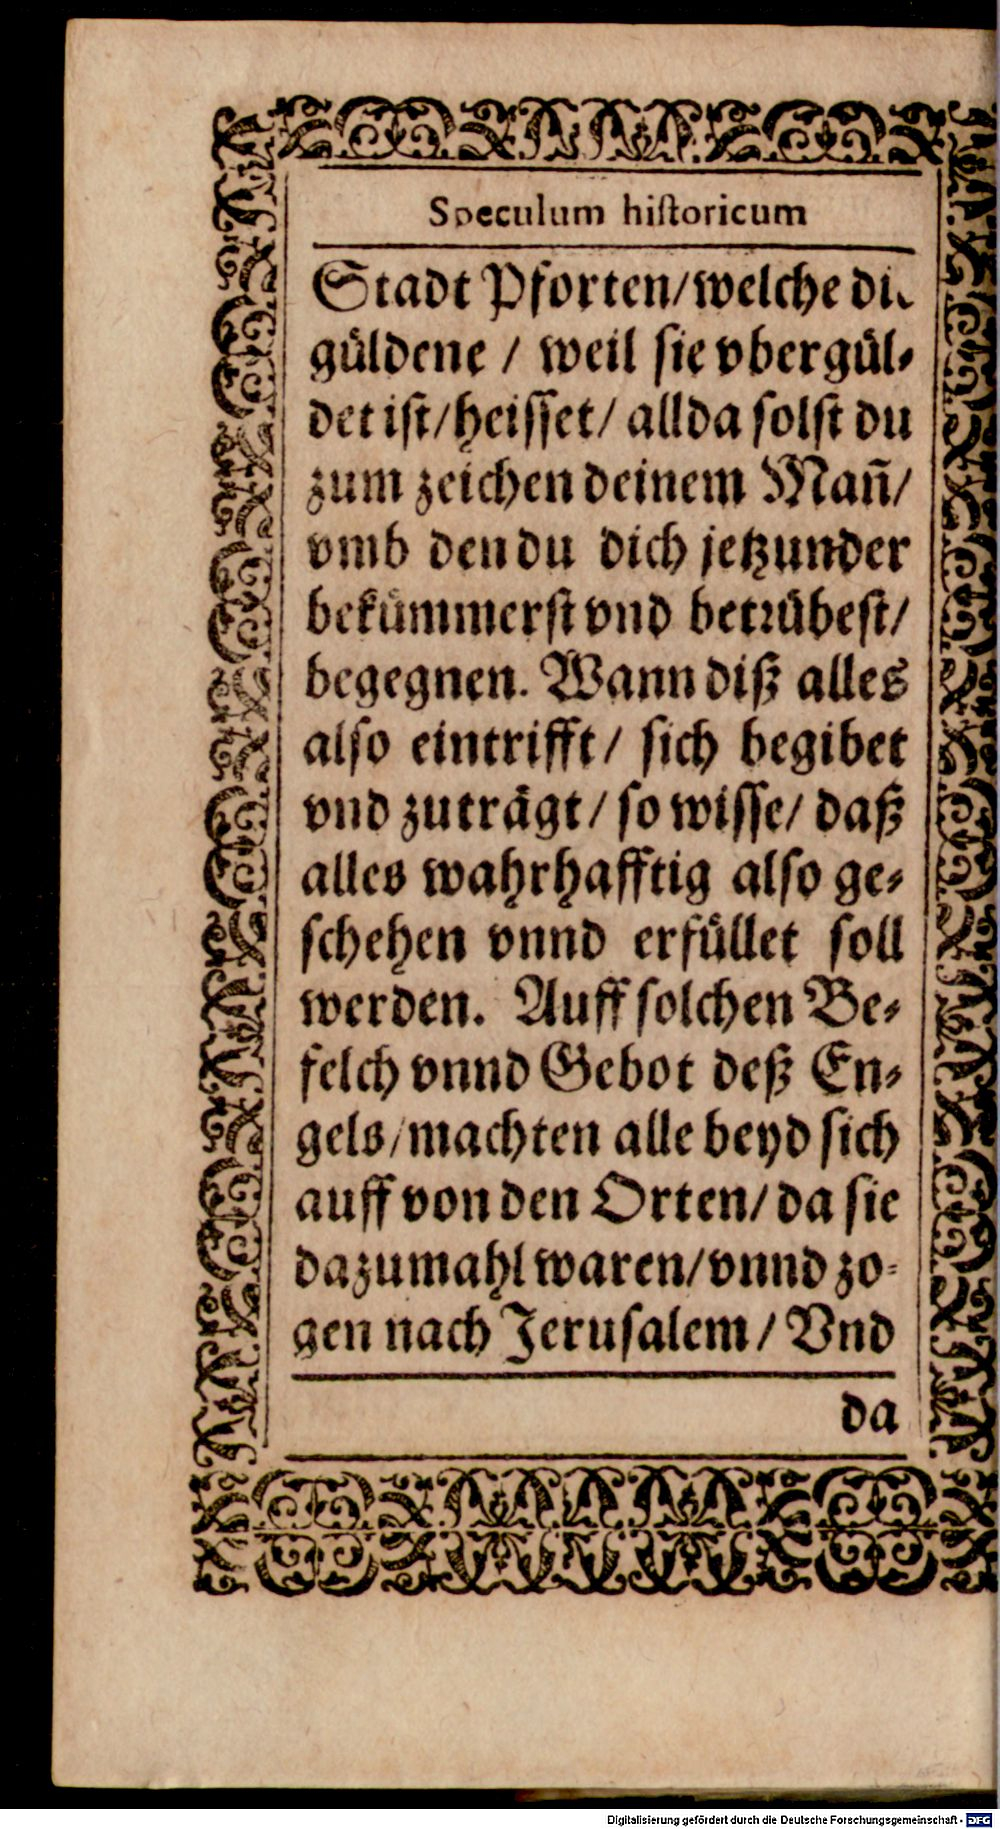 Speculum historicum
Stadt Pforten/welche die
güldene / weil sie vbergül-
det ist/heisset/ allda solst du
zum zeichen deinem Mañ/
vmb den du dich jetzunder
bekümmerst vnd betrübest/
begegnen. Wann diß alles
also eintrifft/ sich begibet
vnd zuträgt/ so wisse/ daß
alles wahrhafftig also ge-
schehen vnnd erfüllet soll
werden. Auff solchen Be-
felch vnnd Gebot deß En-
gels/machten alle beyd sich
auff von den Orten/ da sie
dazumahl waren/vnnd zo-
gen nach Jerusalem / Vnd
da
Digitalisierung gefördert durch die Deutsche Forschungsgemeinschaft - DFG